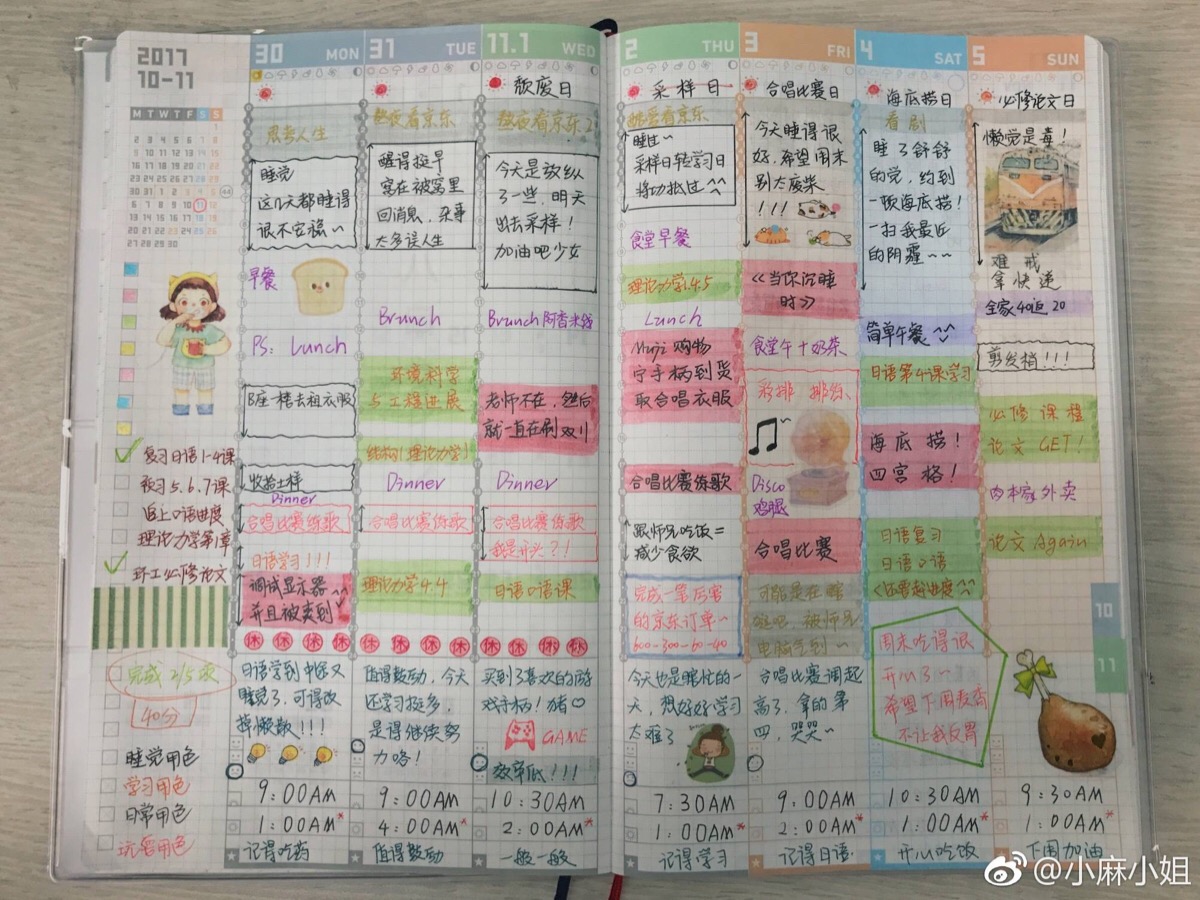 2017
10-11
M T W T F S S
1
2 3 4 5 6 7 8
9 10 11 12 13 14 15
16 17 18 19 20 21 22
23 24 25 26 27 28 29
30 31 1 2 3 4 5
6 7 8 9 10 11 12
13 14 15 16 17 18 19
20 21 22 23 24 25 26
27 28 29 30
44
复习日语1-4课
预习5.6.7课
追上口语进度
理论力学第1章
环工必修论文
完成 2/5 项
40分
睡觉用色
学习用色
日常用色
玩耍用色
30 MON
思考人生
睡觉
这几天都睡得
很不安稳~
早餐
PS: Lunch
B座一楼去租衣服
收拾土样
Dinner
合唱比赛练歌
日语学习!!!
调试显示器
并且被卖到
休 休 休 休
日语学到中途又
睡觉了,可得改
掉懒散!!!
9:00AM
1:00AM*
记得吃药
31 TUE
熬夜看京东
醒得挺早
窝在被窝里
回消息,杂事
太多误人生
Brunch
环境科学
与工程进展
结构1 理论力学1
Dinner
合唱比赛练歌
理论力学4.4
休 休 休 休
值得鼓动,今天
还学习挺多,
是得继续努
力咯!
9:00AM
4:00AM*
值得鼓动
11.1 WED
颓废日
熬夜看京东2
今天是放纵
了一些,明天
出去采样!
加油吧少女
Brunch 阿香米线
老师不在,然后
就一直在刷双11
Dinner
合唱比赛练歌
我是开头?!
日语口语课
休 休 休 休
买到了喜欢的游
戏手柄!猪
GAME
效率低!!!
10:30AM
2:00AM*
一般一般
2 THU
采样日
熬夜看京东
睡过~
采样日转学习日
将功抵过^^
食堂早餐
理论力学1.4.5
Lunch
Muji 购物
宁手柄到货
取合唱衣服
合唱比赛练歌
跟师兄吃饭=
减少食欲
完成一笔厉害
的京东订单~
600-300-60-40
今天也是瞎忙的一
天,想好好学习
太难了
7:30AM
1:00AM*
记得学习
3 FRI
合唱比赛日
今天睡得很
好,希望周末
别太废柴
!!!
《当你沉睡
时》
食堂午+奶茶
彩排 排练
Disco
鸡腿
合唱比赛
可能是在瞎
逛吧,被师兄
电脑气到~
合唱比赛调起
高了,拿的第
四,哭哭~
9:00AM
2:00AM*
记得日语
4 SAT
海底捞日
看剧
睡了舒舒
的觉,约到
一顿海底捞!
一扫我最近
的阴霾~~
简单午餐^^
日语第4课学习
海底捞!
四宫格!
日语复习
日语口语
<还要赶进度^^
周末吃得很
开心了~
希望下周麦齐
不让我反胃
10:30AM
1:00AM*
开心吃饭
5 SUN
必修论文日
懒觉是毒!
难戒
拿快递
全家40返20
剪发梢!!!
必修课程
论文GET!
肉本家外卖
论文Again
9:30AM
1:00AM*
下周加油
10
11
@小麻小姐